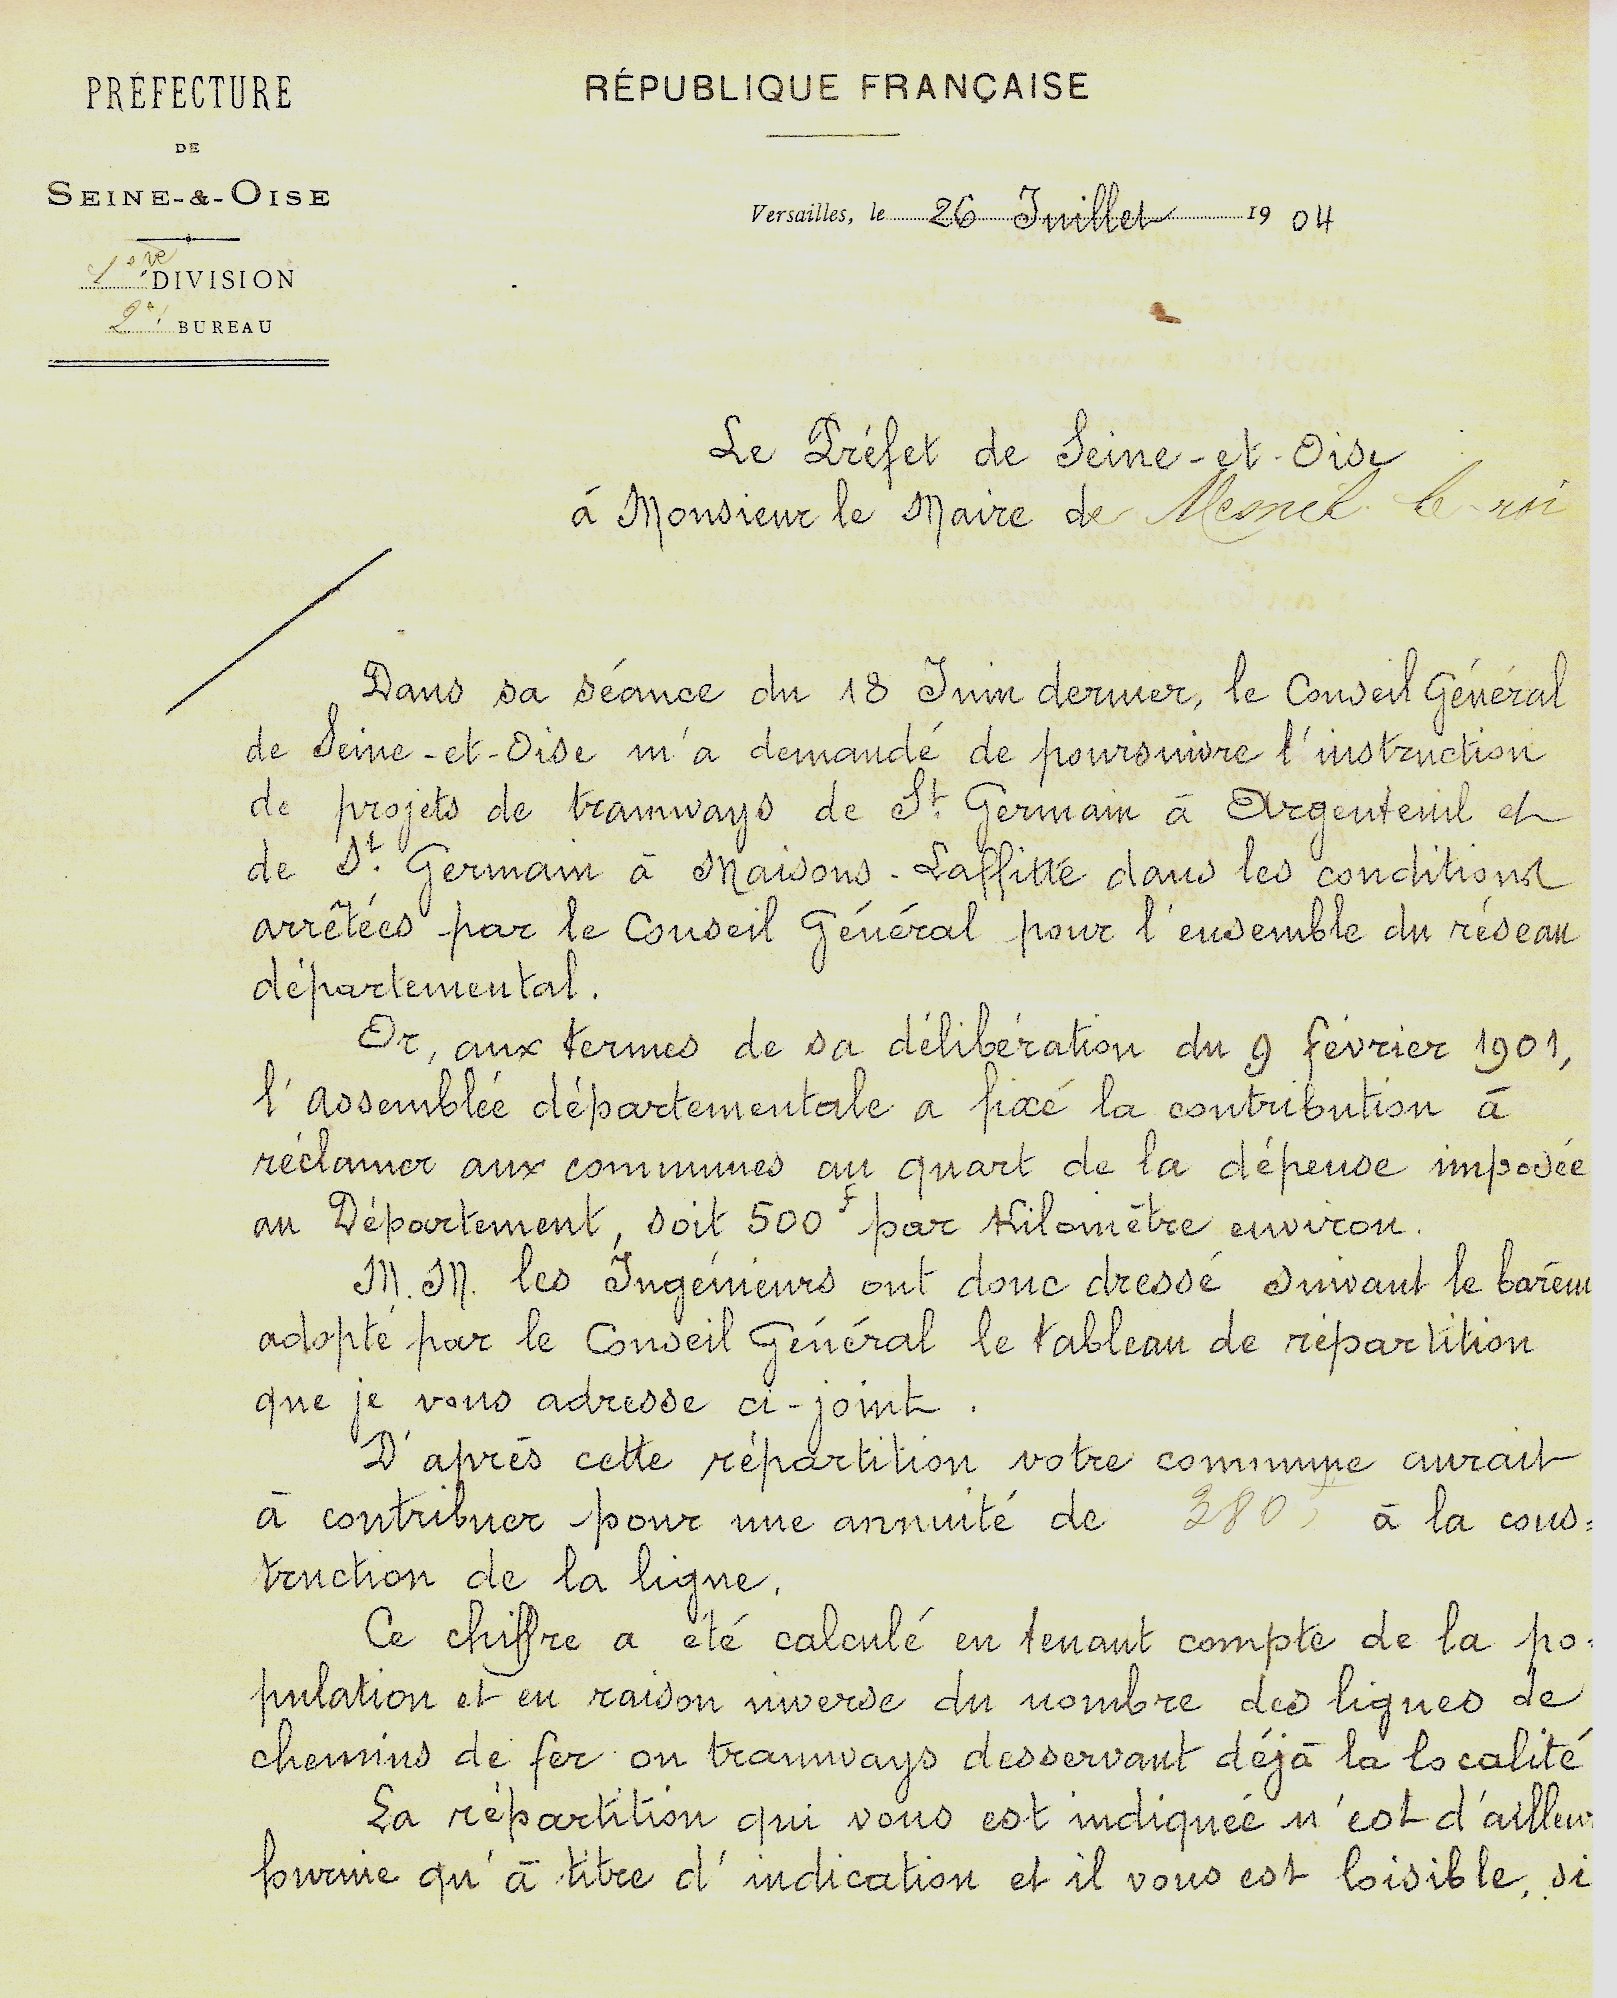 PRÉFECTURE
DE
SEINE-&-OISE
1ère DIVISION
2e BUREAU
RÉPUBLIQUE FRANÇAISE
Versailles, le 26 Juillet 1904
Le Préfet de Seine-et-Oise
à Monsieur le Maire de Mesnil le roi
Dans sa séance du 18 Juin dernier, le Conseil Général
de Seine-et-Oise m'a demandé de poursuivre l'instruction
de projets de tramways de St. Germain à Argenteuil et
de St. Germain à Maisons-Laffitte dans les conditions
arrêtées par le Conseil Général pour l'ensemble du réseau
départemental.
Or, aux termes de sa délibération du 9 février 1901,
l'Assemblée départementale a fixé la contribution à
réclamer aux communes au quart de la dépense imposée
au Département, soit 500f par Kilomètre environ.
M.M. les Ingénieurs ont donc dressé suivant le barem
adopté par le Conseil Général le tableau de répartition
que je vous adresse ci-joint.
D'après cette répartition votre commune aurait
à contribuer pour une annuité de 380f à la cons=
truction de la ligne.
Ce chiffre a été calculé en tenant compte de la po=
pulation et en raison inverse du nombre des lignes de
chemins de fer ou tramways desservant déjà la localité
La répartition qui vous est indiquée n'est d'ailleur
fournie qu'à titre d'indication et il vous est loisible, si